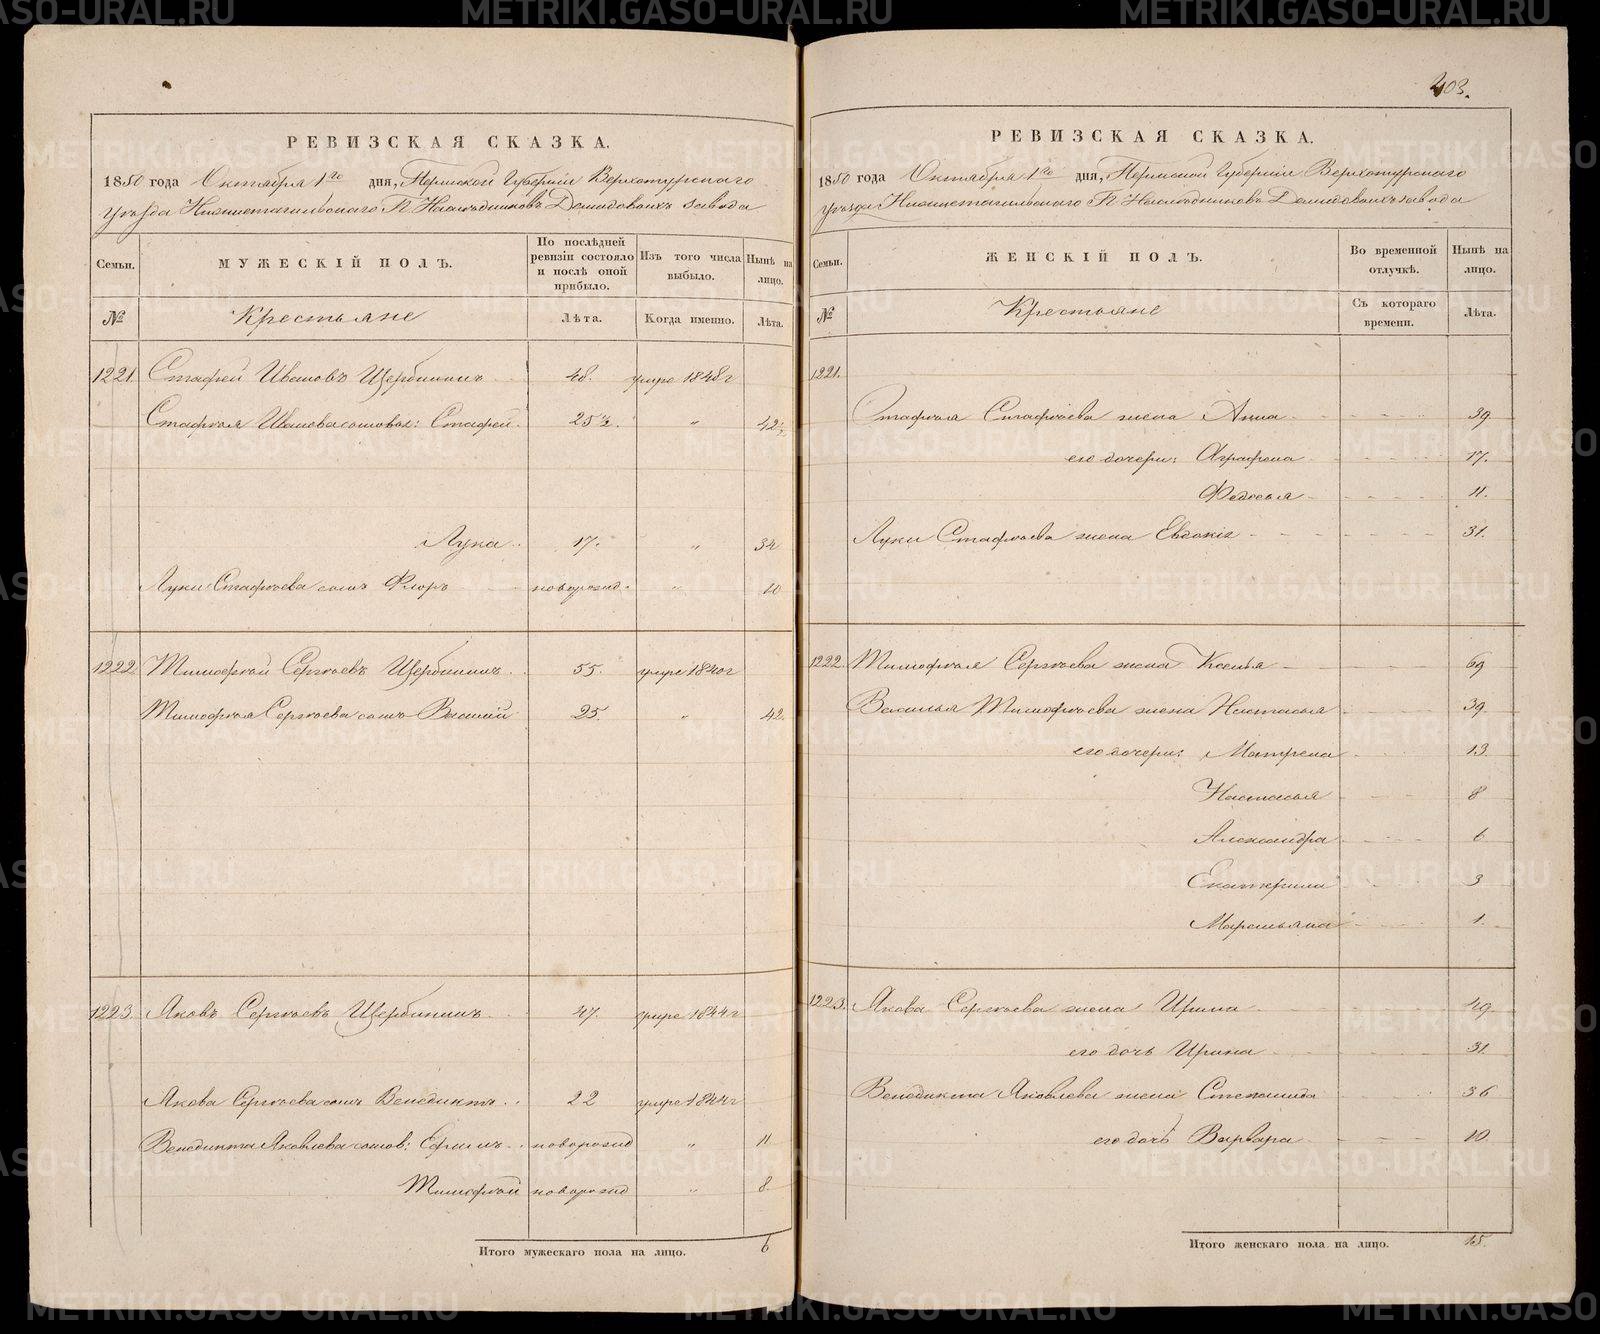 РЕВИЗСКАЯ СКАЗКА.
1850 года Октября 1го дня, Пермской Губернiи Верхотурскаго
Уѣзда Нижнетагильскаго Г. Наслѣдниковъ Демидовыхъ завода
Семьи. МУЖЕСКIЙ ПОЛЪ. По послѣдней ревизiи состояло и послѣ оной прибыло. Изъ того числа выбыло. Нынѣ на лицо.
№ Крестьяне Лѣта. Когда именно. Лѣта.
1221. Стафей Ивановъ Щербининъ 48. умре 1848г
Стафѣя Иванова сыновья: Стафей 25½. „ 42½
Лука 17. „ 34
Луки Стафѣева сынъ Флоръ новорожд. „ 10
1222 Тимофѣй Сергѣевъ Щербининъ 55. умре 1840г
Тимофѣя Сергѣева сынъ Василiй 25. „ 42.
1223. Яковъ Сергѣевъ Щербининъ 47. умре 1844г
Якова Сергѣева сынъ Венедиктъ 22 умре 1844г
Венедикта Яковлева сынов: Ефимъ новорожд „ 11
Тимофѣй новорожд „ 8.
Итого мужескаго пола на лицо. 6
403.
РЕВИЗСКАЯ СКАЗКА.
1850 года Октября 1го дня, Пермской Губернiи Верхотурскаго
Уѣзда Нижнетагильскаго Г. Наслѣдниковъ Демидовыхъ завода
Семьи. ЖЕНСКIЙ ПОЛЪ. Во временной отлучкѣ. Нынѣ на лицо.
№ Крестьяне Съ котораго времени. Лѣта.
1221.
Стафѣя Стафѣева жена Анна 39
его дочери: Аграфена 17.
Федосья 11.
Луки Стафѣева жена Евдокiя 31.
1222. Тимофѣя Сергѣева жена Ксенья 69
Василья Тимофѣева жена Настасья 39
его дочери: Матрена 13
Настасья 8
Александра 6
Екатерина 3
Маремьяна 1.
1223. Якова Сергѣева жена Ирина 49.
его дочь Ирина 31
Венедикта Яковлева жена Степанида 36
его дочь Варвара 10
Итого женскаго пола на лицо. 15.
METRIKI.GASO-URAL.RU